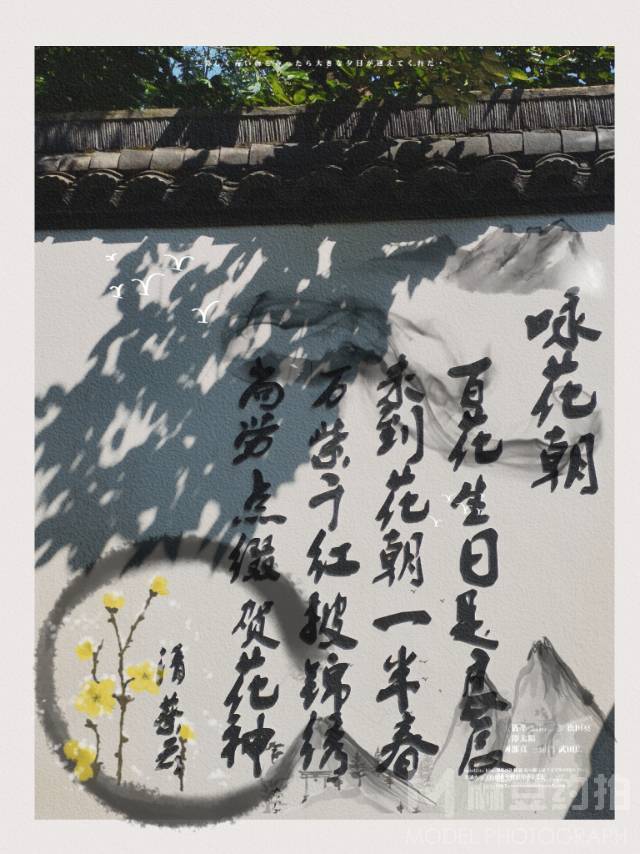 たら大きな夕日が迎えてくれた
咏花朝
百花生日是良辰
未到花朝一半春
万紫千红披锦绣
尚劳点缀贺花神
清 蔡云
麻豆约拍
MODEL PHOTOGRAPH